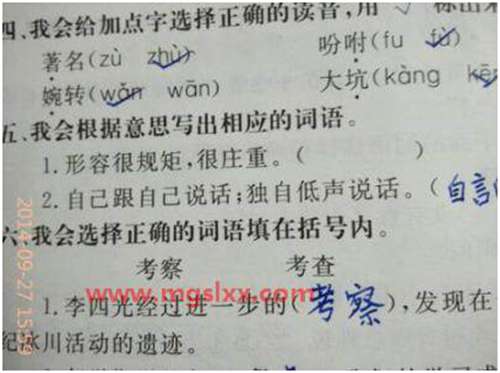 四、我会给加点字选择正确的读音,用 ✓
著名(zù zhù) 吩咐(fu fù)
婉转(wǎn wān) 大坑(kàng kēn
五、我会根据意思写出相应的词语。
1.形容很规矩,很庄重。( )
2.自己跟自己说话;独自低声说话。(自言
六、我会选择正确的词语填在括号内。
考察 考查
www.mgslxx.com
1.李四光经过进一步的(考察),发现在
纪冰川活动的遗迹。
2014-09-27 15:59